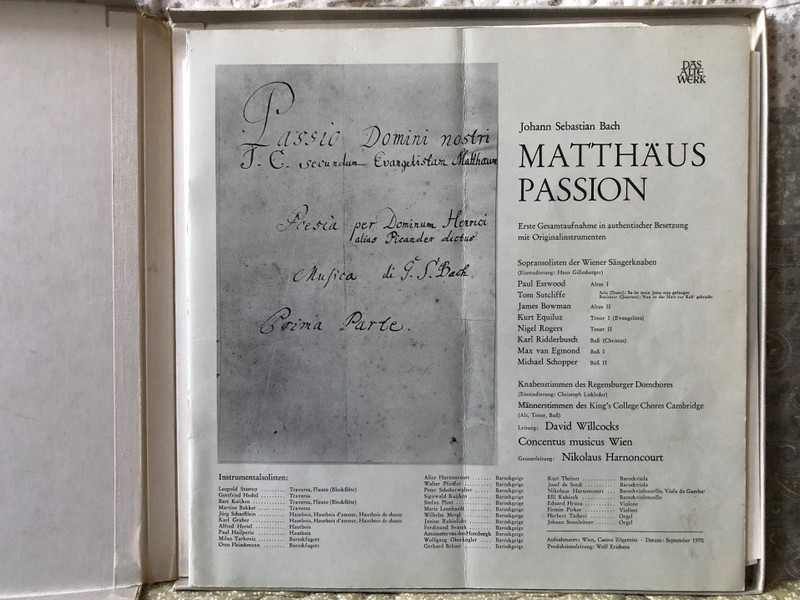 DAS
ALTE
WERK
Passio Domini nostri
J. C. secundum Evangelistam Matthaeum
Poesia per Dominum Henrici
alias Picander dictus
Musica di G. S. Bach
Prima Parte.
Johann Sebastian Bach
MATTHÄUS
PASSION
Erste Gesamtaufnahme in authentischer Besetzung
mit Originalinstrumenten
Sopransolisten der Wiener Sängerknaben
(Einstudierung: Hans Gillesberger)
Paul Esswood Altus I
Tom Sutcliffe
James Bowman Altus II
Kurt Equiluz Tenor I (Evangelista)
Nigel Rogers Tenor II
Karl Ridderbusch Baß (Christus)
Max van Egmond Baß I
Michael Schopper Baß II
Knabenstimmen des Regensburger Domchores
(Einstudierung: Christoph Lickleder)
Männerstimmen des King's College Chores Cambridge
(Alt, Tenor, Baß)
Leitung: David Willcocks
Concentus musicus Wien
Gesamtleitung: Nikolaus Harnoncourt
Instrumentalsolisten:
Leopold Stastny ........ Traversa, Flauto (Blockflöte)
Gottfried Hechtl ........ Traversa
Bart Kuijken ........ Traversa, Flauto (Blockflöte)
Martine Bakker ........ Traversa
Jürg Schaeftlein ........ Hautbois, Hautbois d'amour, Hautbois da caccia
Karl Gruber ........ Hautbois, Hautbois d'amour, Hautbois da caccia
Alfred Hertel ........ Hautbois
Paul Hailperin ........ Hautbois
Milan Turkovic ........ Barockfagott
Otto Fleischmann ........ Barockfagott
Alice Harnoncourt ........ Barockgeige
Walter Pfeiffer ........ Barockgeige
Peter Schoberwalter ........ Barockgeige
Sigiswald Kuijken ........ Barockgeige
Stefan Plott ........ Barockgeige
Marie Leonhardt ........ Barockgeige
Wilhelm Mergl ........ Barockgeige
Janine Rubinlicht ........ Barockgeige
Ferdinand Svatek ........ Barockgeige
Antoinette van den Hombergh Barockgeige
Wolfgang Oberkogler ........ Barockgeige
Gerhard Braun ........ Barockgeige
Kurt Theiner ........ Barockviola
Josef de Sordi ........ Barockviola
Nikolaus Harnoncourt .... Barockvioloncello, Viola da Gamba
Elli Kubizek ........ Barockvioloncello
Eduard Hruza ........ Violone
Firmin Pirker ........ Violone
Herbert Tachezi ........ Orgel
Johann Sonnleitner ........ Orgel
Aufnahmeort: Wien, Casino Zögernitz · Datum: September 1970
Produktionsleitung: Wolf Erichson